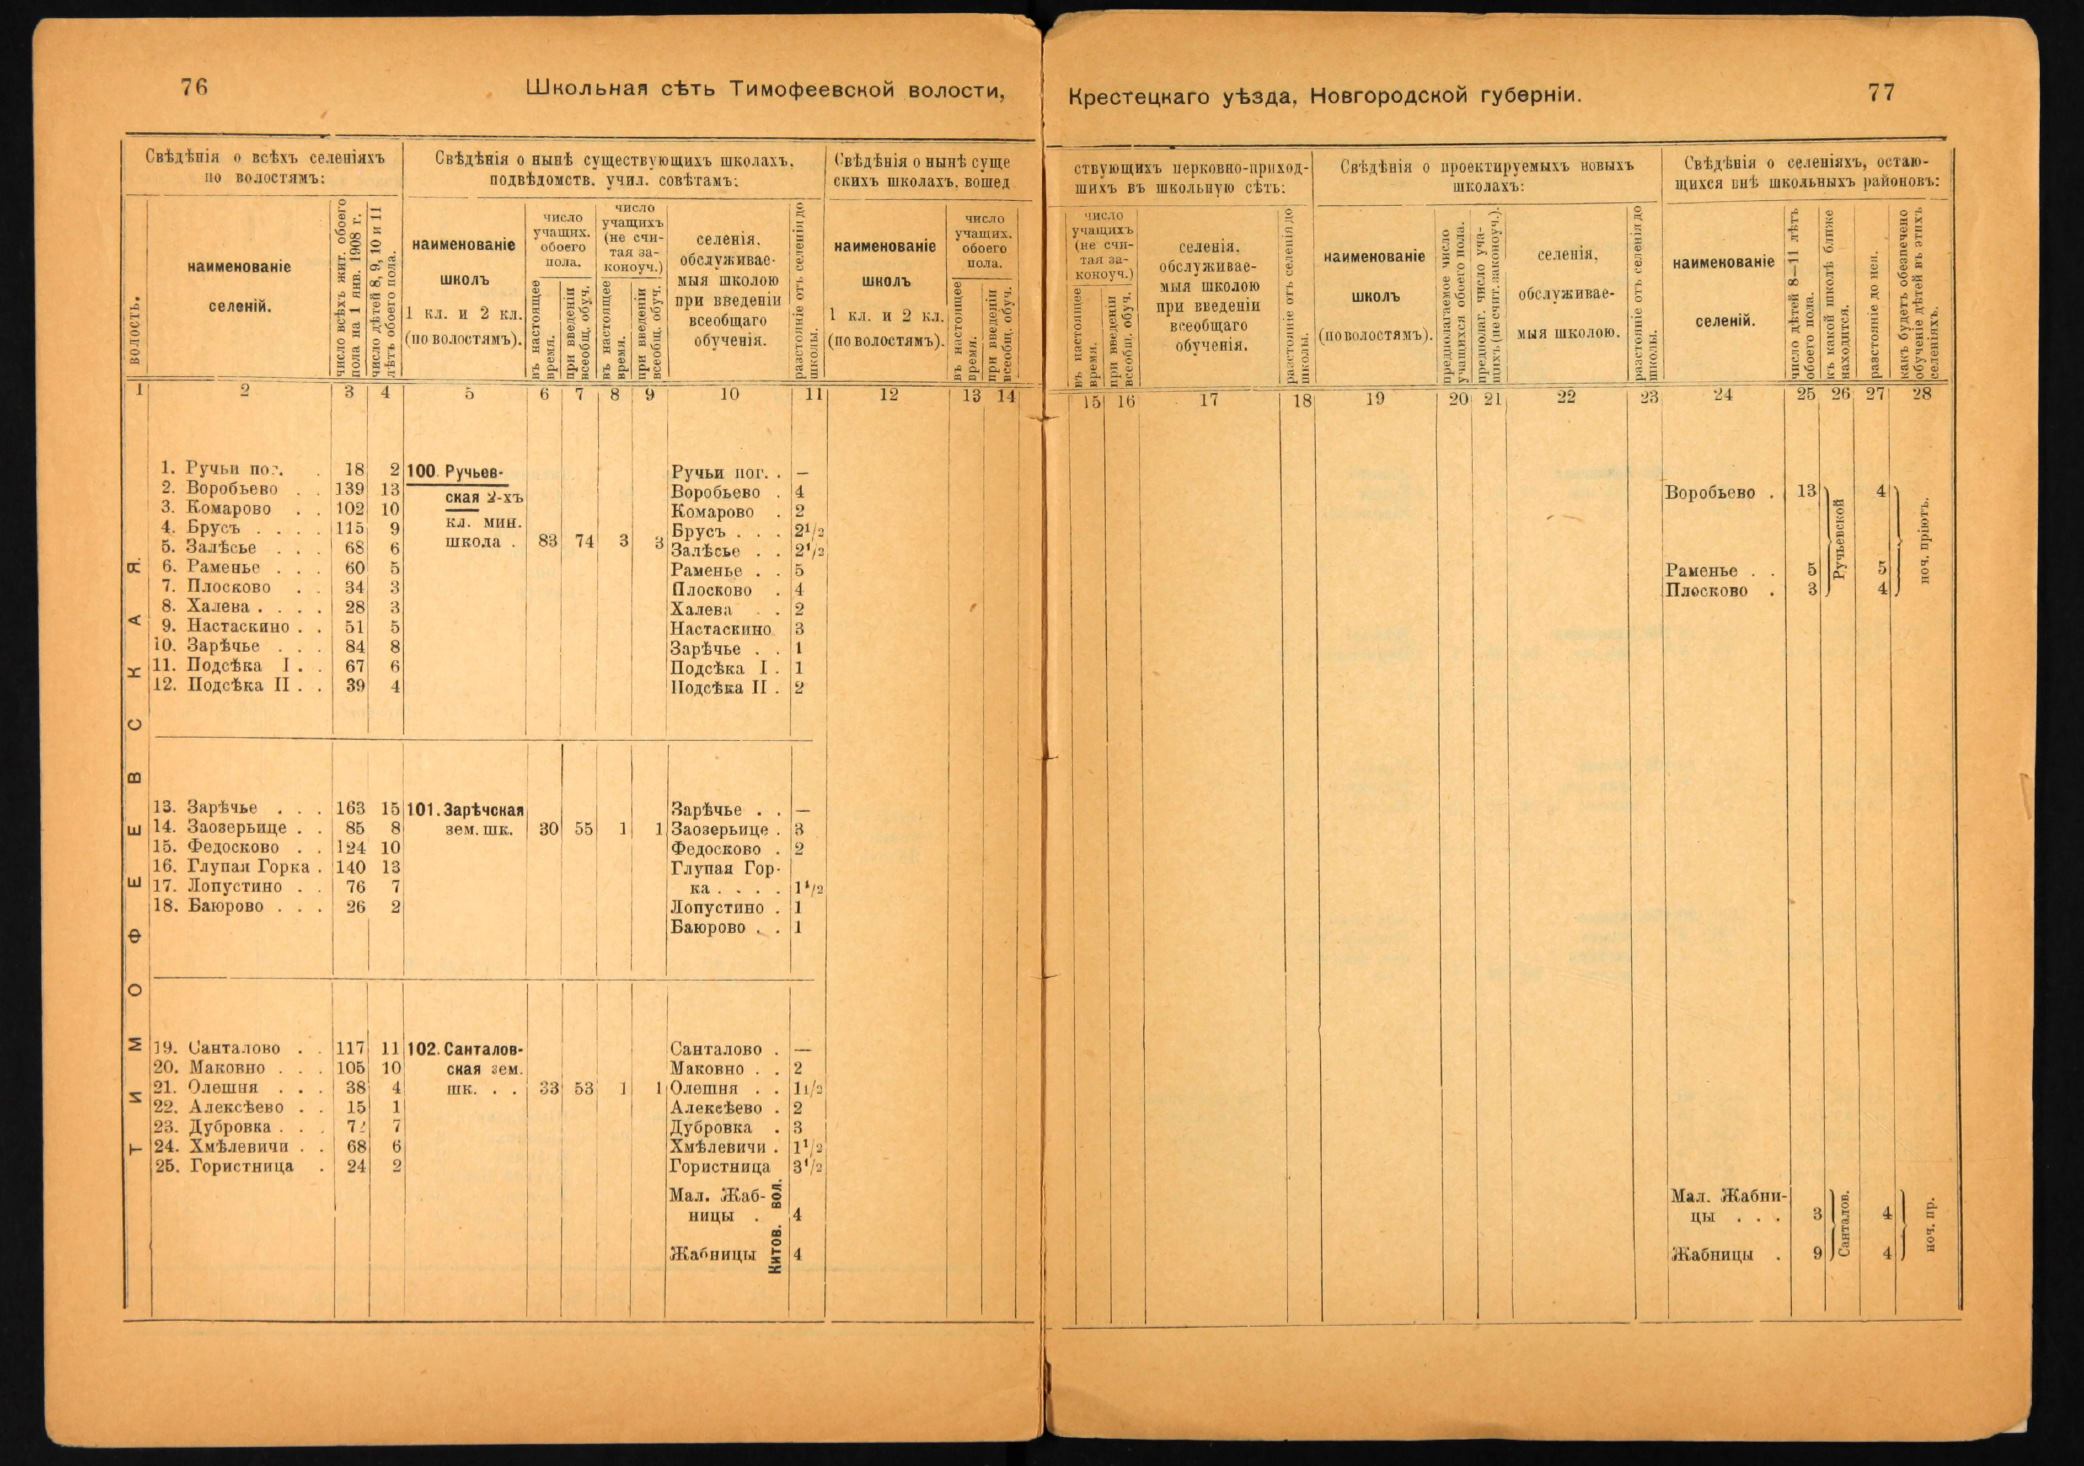 76
Школьная сѣть Тимофеевской волости,
Свѣдѣнія о всѣхъ селеніяхъ
по волостямъ:
Свѣдѣнія о нынѣ существующихъ школахъ,
подвѣдомств. учил. совѣтамъ:
Свѣдѣнія о нынѣ суще
скихъ школахъ, вошед
волость.
наименованіе
селеній.
число всѣхъ жит. обоего
пола на 1 янв. 1908 г.
число дѣтей 8, 9, 10 и 11
лѣтъ обоего пола.
наименованіе
школъ
1 кл. и 2 кл.
(по волостямъ).
число
учащих.
обоего
пола.
въ настоящее
время.
при введеніи
всеобщ. обуч.
число
учащихъ
(не счи-
тая за-
коноуч.)
въ настоящее
время.
при введеніи
всеобщ. обуч.
селенія,
обслуживае-
мыя школою
при введеніи
всеобщаго
обученія.
разстояніе отъ селенія до
школы.
наименованіе
школъ
1 кл. и 2 кл.
(по волостямъ).
число
учащих.
обоего
пола.
въ настоящее
время.
при введеніи
всеобщ. обуч.
1 2 3 4 5 6 7 8 9 10 11 12 13 14
ТИМОФЕЕВСКАЯ.
1. Ручьи пог. . 18 2 100. Ручьев- Ручьи пог. . —
2. Воробьево . . 139 13 ская 2-хъ Воробьево . 4
3. Комарово . . 102 10 кл. мин. Комарово . 2
4. Брусъ . . . . 115 9 школа . 83 74 3 3 Брусъ . . . 2 1/2
5. Залѣсье . . . 68 6 Залѣсье . . 2 1/2
6. Раменье . . . 60 5 Раменье . . 5
7. Плосково . . 34 3 Плосково . 4
8. Халева . . . . 28 3 Халева . . 2
9. Настаскино . . 51 5 Настаскино 3
10. Зарѣчье . . . 84 8 Зарѣчье . . 1
11. Подсѣка I . . 67 6 Подсѣка I . 1
12. Подсѣка II . . 39 4 Подсѣка II . 2
13. Зарѣчье . . . 163 15 101. Зарѣчская Зарѣчье . . —
14. Заозерьице . . 85 8 зем. шк. 30 55 1 1 Заозерьице . 3
15. Федосково . . 124 10 Федосково . 2
16. Глупая Горка . 140 13 Глупая Гор-
ка . . . . 1 1/2
17. Лопустино . . 76 7 Лопустино . 1
18. Баюрово . . . 26 2 Баюрово . . 1
19. Санталово . . 117 11 102. Санталов- Санталово . —
20. Маковно . . . 105 10 ская зем. Маковно . . 2
21. Олешня . . . 38 4 шк. . . 33 53 1 1 Олешня . . 1 1/2
22. Алексѣево . . 15 1 Алексѣево . 2
23. Дубровка . . . 72 7 Дубровка . 3
24. Хмѣлевичи . . 68 6 Хмѣлевичи . 1 1/2
25. Гористница . 24 2 Гористница 3 1/2
Мал. Жаб-
ницы . 4
Жабницы 4
Китов. вол.
Крестецкаго уѣзда, Новгородской губерніи.
77
ствующихъ церковно-приход-
шихъ въ школьную сѣть:
Свѣдѣнія о проектируемыхъ новыхъ
школахъ:
Свѣдѣнія о селеніяхъ, остаю-
щихся внѣ школьныхъ районовъ:
число
учащихъ
(не счи-
тая за-
коноуч.)
въ настоящее
время.
при введеніи
всеобщ. обуч.
селенія,
обслуживае-
мыя школою
при введеніи
всеобщаго
обученія.
разстояніе отъ селенія до
школы.
наименованіе
школъ
(по волостямъ).
предполагаемое число
учащихся обоего пола.
предполаг. число уча-
щихъ (не счит. законоуч.).
селенія,
обслуживае-
мыя школою.
разстояніе отъ селенія до
школы.
наименованіе
селеній.
число дѣтей 8—11 лѣтъ
обоего пола.
къ какой школѣ ближе
находится.
разстояніе до нея.
какъ будетъ обезпечено
обученіе дѣтей въ этихъ
селеніяхъ.
15 16 17 18 19 20 21 22 23 24 25 26 27 28
Воробьево . 13 4
Раменье . . 5 5
Плосково . 3 4
Ручьевской
ноч. пріютъ.
Мал. Жабни-
цы . . . 3 4
Жабницы . 9 4
Санталов.
ноч. пр.